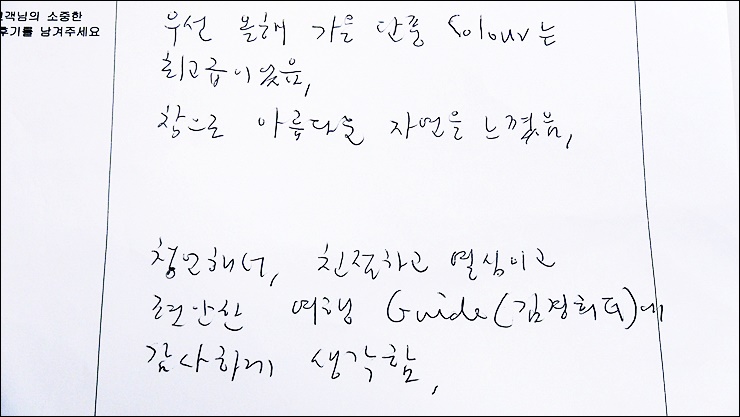 고객님의 소중한
후기를 남겨주세요
우선 올해 가을 단풍 Colour는
최고급이었음,
참으로 아름다운 자연을 느꼈음,
첨언해서, 친절하고 열심이고
편안한 여행 Guide(김경희더)에
감사하게 생각함,